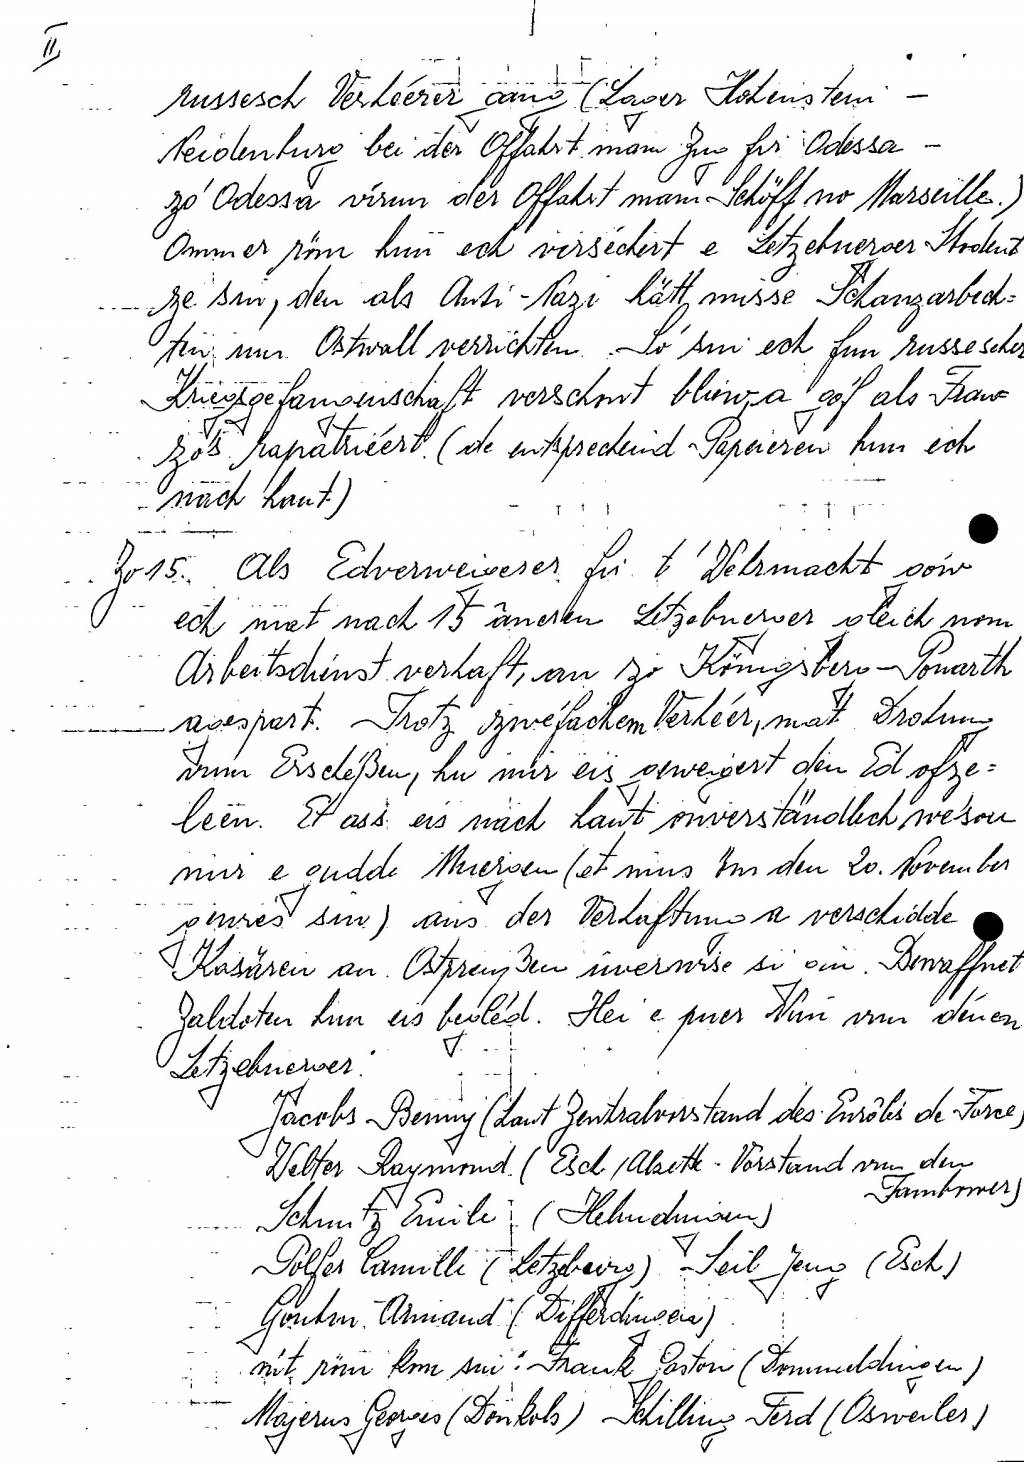 II
russesch Verhéerer gang (Lager Hohenstein –
Neidenburg bei der Offahrt mam Zug fir Odessa –
zo' Odessa virun der Offahrt mam Schöff no Marseille.)
Ommer röm hun ech verséchert e Letzebuerger Student
ze sin, den als Anti-Nazi hätt misse Schanzarbech=
ten um Ostwall verrichten. So' sin ech fun russescher
Kriegsgefangenschaft verschont bliwn, a go'f als Fran=
zo's rapatriéert. (de entsprechend Papeieren hun ech
nach haut)
Zo 15. Als Edverweigerer fir t'Wehrmacht go'w
ech mat nach 15 äneren Letzebuerger gleich nom
Arbeitsdienst verhaft, an zo Königsberg-Ponarth
agespart. Trotz zwéfachem Verhéer, mat Drohung
vum Erschéßen, hu mir eis geweigert den Ed ofze=
leën. Et ass eis nach haut onverständlech, we'sou
mir e gudde Muergen (et muss em den 20. November
gewies sin) aus der Verhaftung a verschidde
Kasären an Ostpreußen iwerwise si gin. Bewaffnet
Zaldoten hun eis begléd. Hei e puer Nim vun dénen
Letzebuerger:
Jacobs Benny (Laut Zentralvorstand des Enrôlés de Force)
Welter Raymond (Esch/Alzette - Vorstand vun den
Tambower)
Schmitz Emile (Helmdingen)
Polfer Camille (Letzebuerg) Seil Jeng (Esch)
Armand (Differdingen)
nit röm kom sin: Frank Gaston (Dommeldingen)
Majerus Georges (Donkols) Schilling Ferd (Osweiler)